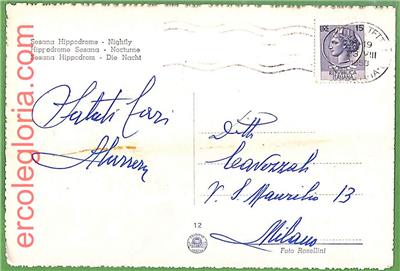 Sesana Hippodrome - Nightly
Hippodrome Sesana - Nocturne
Sesana Hippodrom - Die Nacht
LIRE 15
REPVBBLICA
ITALIANA
19
Saluti Cari
Ditta
V. S. Maurilio 13
Milano
12
Foto Rosellini
ercolegloria.com